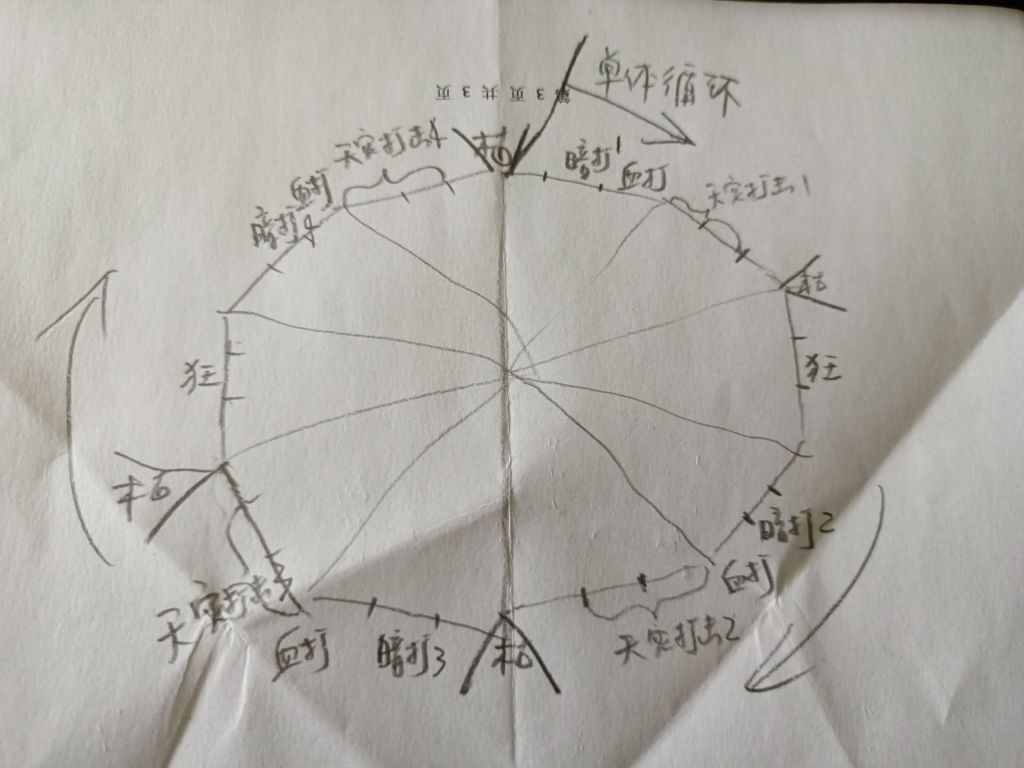 单体循环
第 3 页 共 3 页
天实打击4
暗打1
血打
天实打击1
血打
暗打4
狂
狂
暗打2
血打
天实打击2
天实打击3
血打
暗打3